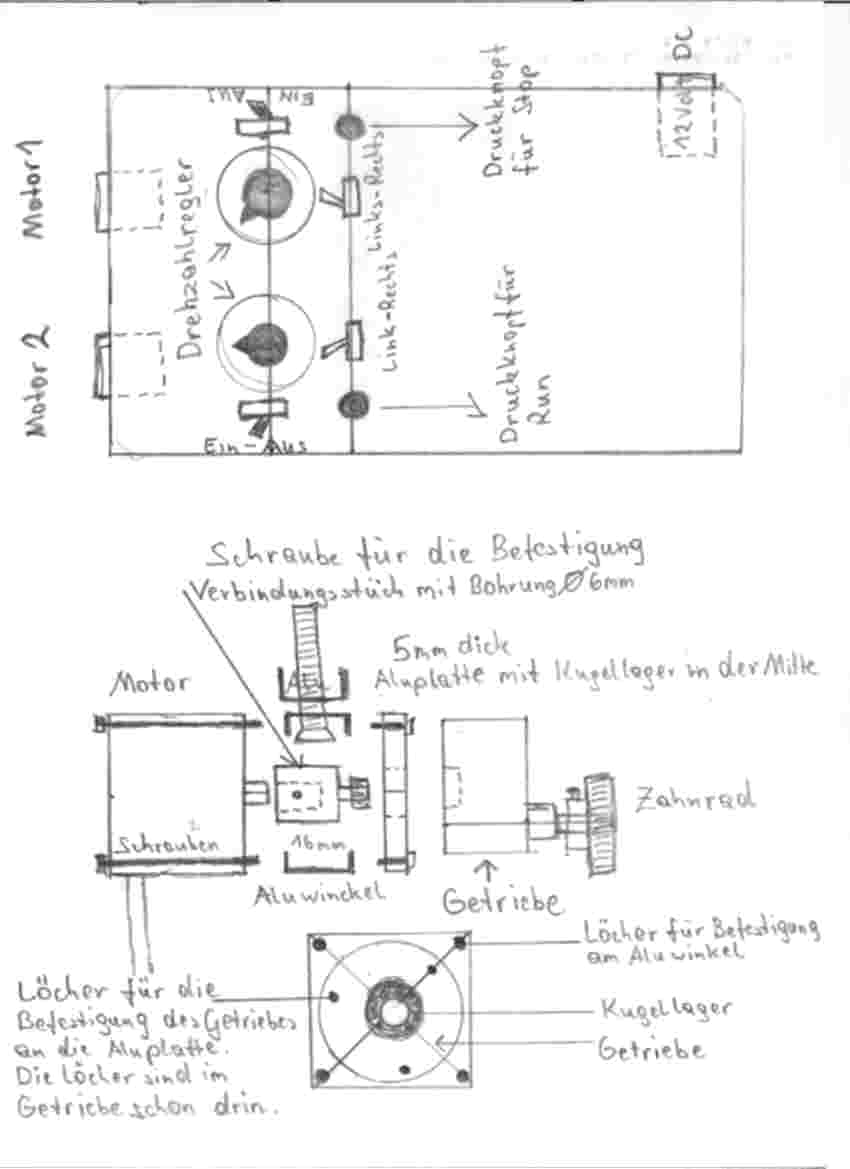 Motor 1
Motor 2
AUS
EIN
Drehzahlregler
Links-Rechts
Link-Rechts
Ein-Aus
Druckknopf
für Stop
Druckknopf für
Run
12Volt DC
Schraube für die Befestigung
Verbindungsstück mit Bohrung Ø 6mm
5mm dick
Aluplatte mit Kugellager in der Mitte
Motor
Alu
Schrauben
16mm
Zahnrad
Aluwinckel
Getriebe
Löcher für Befestigung
am Aluwinkel
Löcher für die
Befestigung des Getriebes
an die Aluplatte.
Die Löcher sind im
Getriebe schon drin.
Kugellager
Getriebe